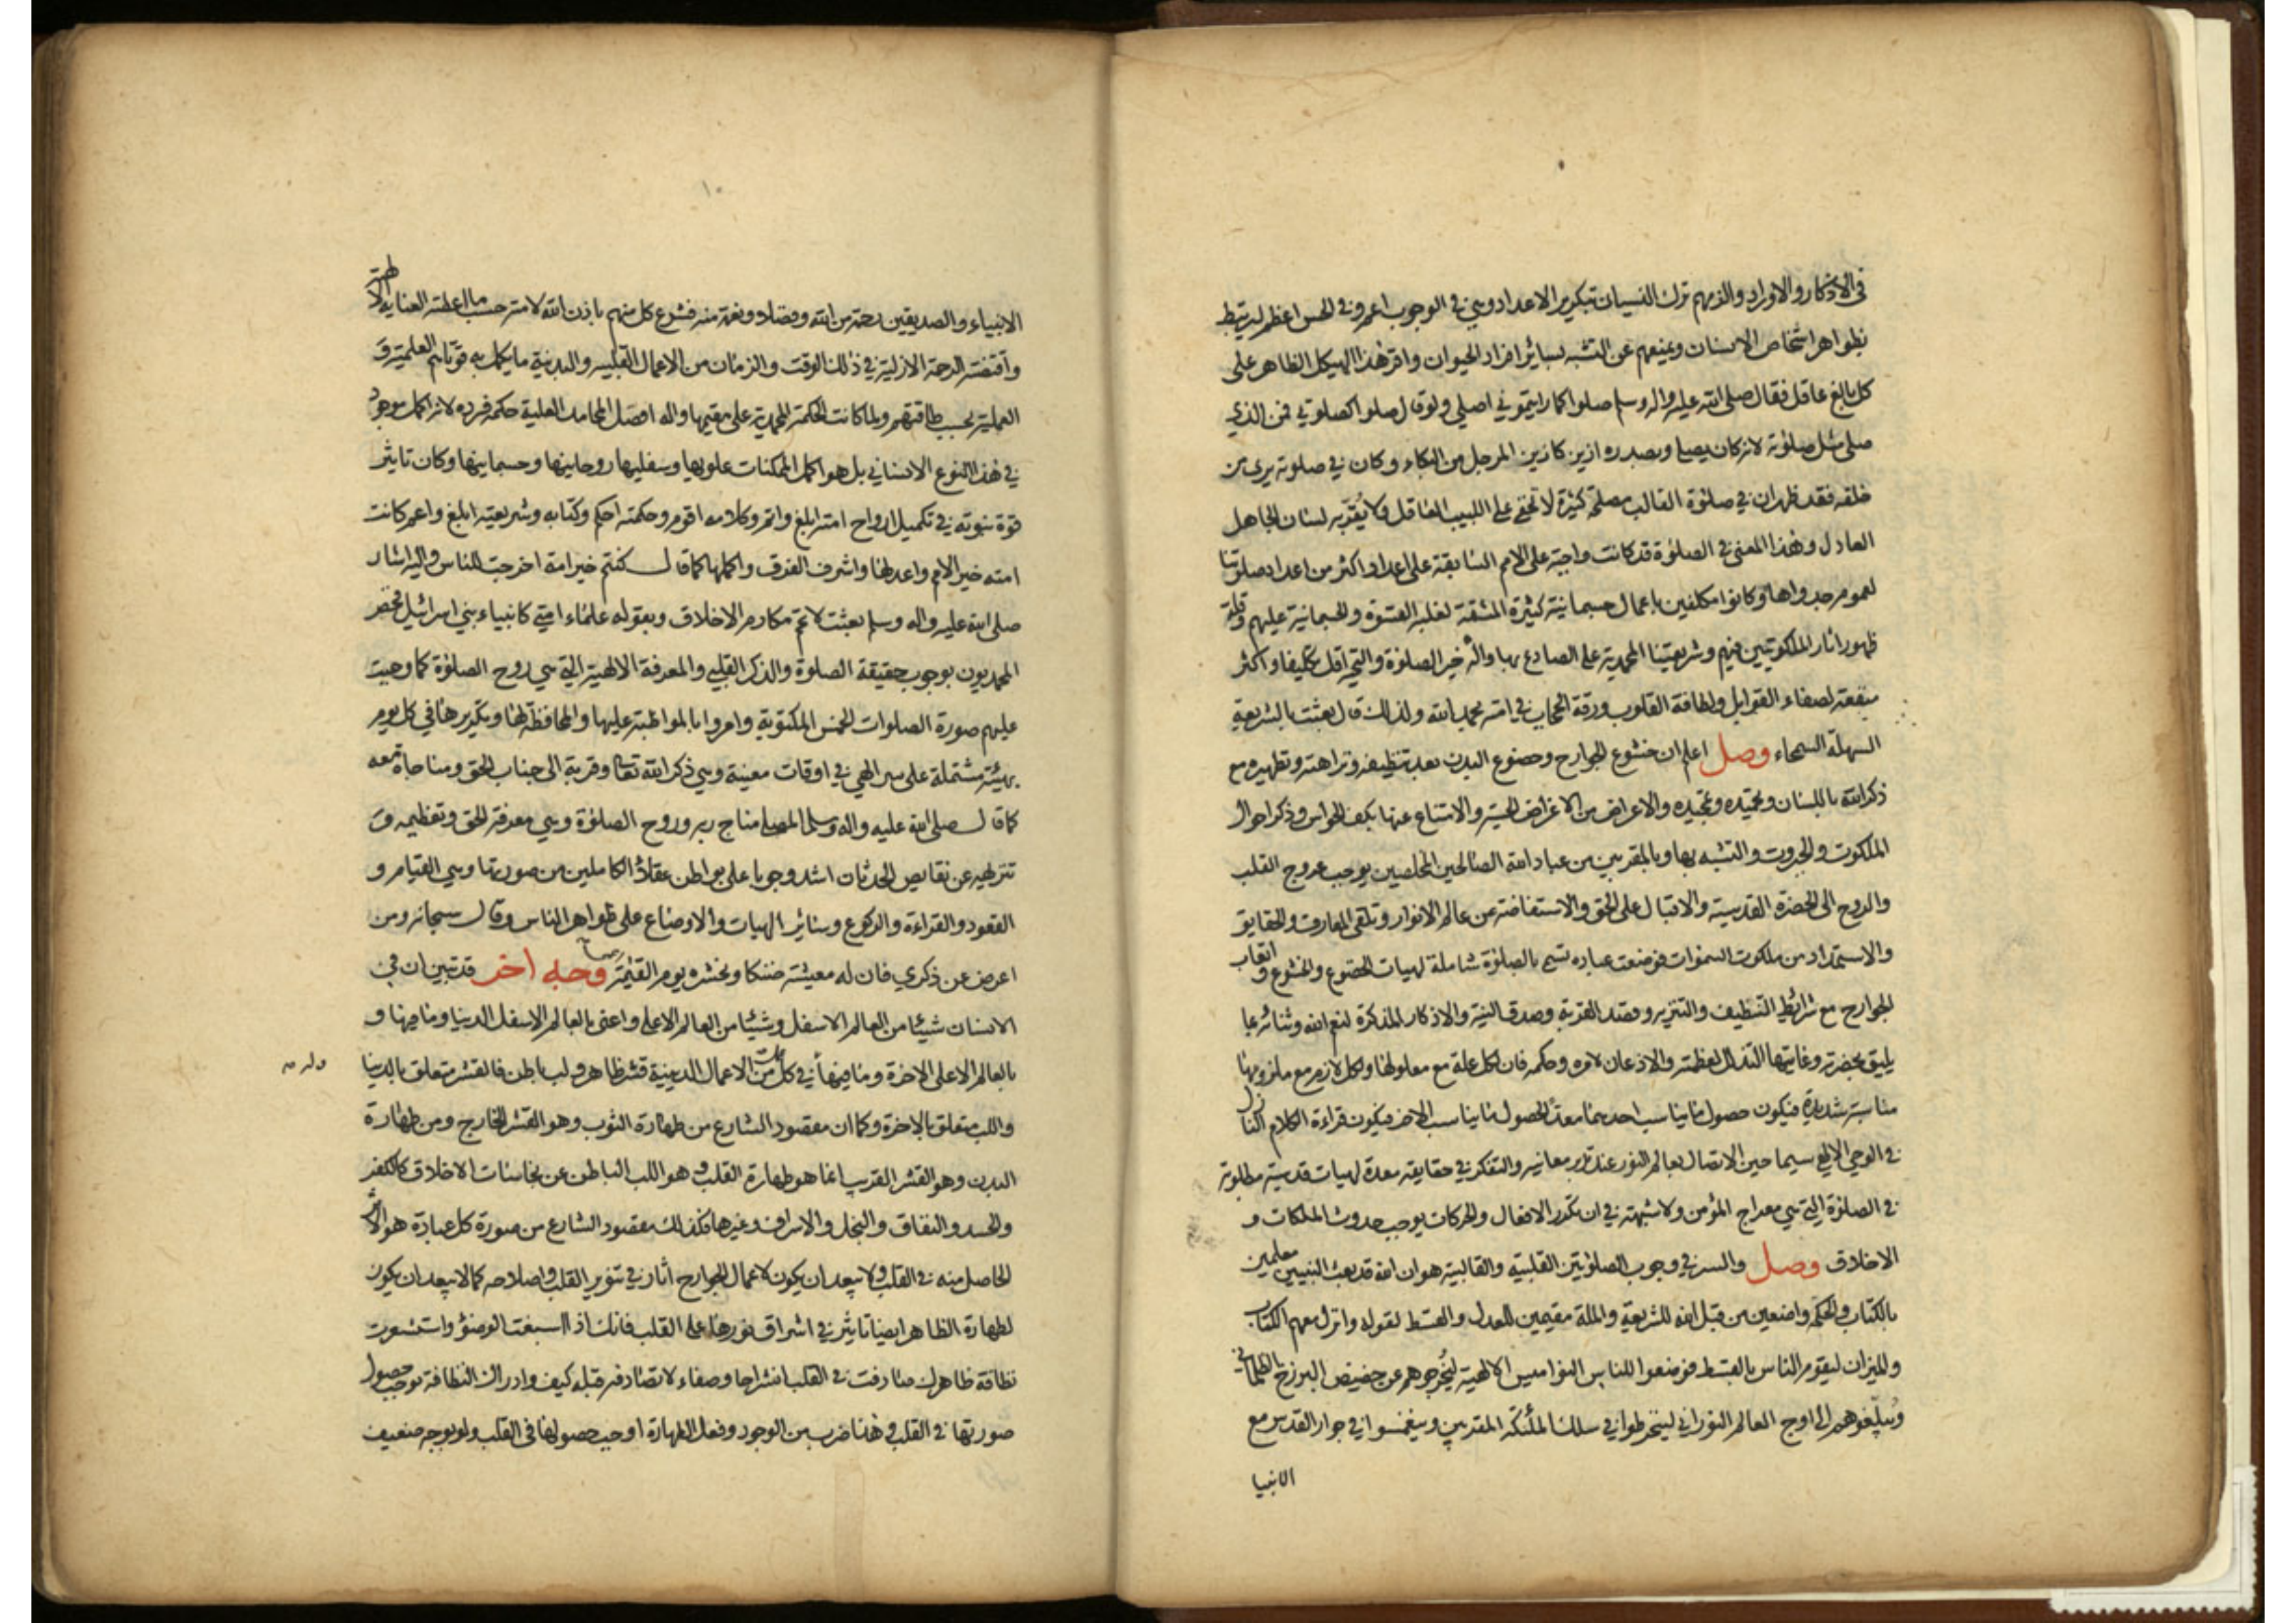 في الاذكار والاوراد والزمهم ترك النسيان بتكرير الاعداد وهي في الوجوب اعم وفي الحس اعظم ليرتبط
بظواهر اشخاص الانسان ويمنعهم عن التشبه بسائر افراد الحيوان واقر هذا الهيكل الظاهر على
كل بالغ عاقل فقال صلى الله عليه واله وسلم صلوا كما رايتموني اصلي ولو قال صلوا كصلوتي فمن الذي
صلى مثل صلوته لانه كان يصلي وبصدره ازيز كازيز المرجل من البكاء وكان في صلوته يرى من
خلفه فقد ظهر ان في صلوة القالب مصلحة كثيرة لا تخفى على اللبيب العاقل ولا يقر به لسان الجاهل
العادل وهذا المعنى في الصلوة قد كانت واجبة على الامم السابقة على اعداد اكثر من اعداد صلوتنا
لعموم جدواها وكانوا مكلفين باعمال جسمانية كثيرة المشقة لغلبة القسوة والجسمانية عليهم وقلة
ظهور اثار الملكوتيين فيهم وشريعتنا المحمدية على الصادع بها واله خير الصلوة والتحية اقل تكليفا واكثر
منفعة لصفاء القوابل ولطافة القلوب ورقة الحجاب في امته بحمد الله ولذلك قال بعثت بالشريعة
السهلة السمحاء وصل اعلم ان خشوع الجوارح وخضوع البدن بعد تنظيفه ونزاهته وتطهيره مع
ذكر الله باللسان وتحميده وتمجيده والاعراض من الاغراض الحسية والامتناع عنها بكف الحواس وذكر احوال
الملكوت والجبروت والتشبه بها وبالمقربين من عباد الله الصالحين المخلصين يوجب عروج القلب
والروح الى الحضرة القدسية والاقبال على الحق والاستفاضة عن عالم الانوار وتلقي المعارف والحقايق
والاستمداد من ملكوت السموات فوضعت عباده تسمى بالصلوة شاملة لهيات الخضوع والخشوع و اتعاب
الجوارح مع شرائط التنظيف والتنزيه وقصد القربة وصدق النية والاذكار المذكرة لنعم الله وثنائه بما
يليق بحضرته وغايتها التذلل لعظمته والاذعان لامره وحكمه فان لكل علة مع معلولها ولكل لازم مع ملزومها
مناسبة شديدة فيكون حصول ما يناسب احدهما معدا لحصول ما يناسب الاخر فيكون قراءة الكلام النازل
في الوحي الالهي سيما حين الاتصال بعالم النور عند تدبر معانيه والتفكر في حقايقه معدة لهيات قدسية مطلوبة
في الصلوة التي هي معراج المؤمن ولا شبهة في ان تكرر الافعال والحركات يوجب حدوث الملكات و
الاخلاق وصل والسر في وجوب الصلوتين القلبية والقالبية هو ان الله قد بعث النبيين معلمين
بالكتاب والحكمة واضعين من قبل الله للشريعة والملة مقيمين للعدل والقسط لقوله وانزل معهم الكتاب
والميزان ليقوم الناس بالقسط فوضعوا للناس النواميس الالهية ليخرجوهم عن حضيض البرزخ الظلماني
ويبلغوهم الى اوج العالم النوراني لينخرطوا في سلك الملئكة المقربين وينغمسوا في جوار القدس مع
الانبيا
١٠
الانبياء والصديقين رحمة من الله وفضلا ونعمة منه فشرع كل منهم باذن الله لامته حسب ما اعطته العناية الالهية
واقتضته الرحمة الازلية في ذلك الوقت والزمان من الاعمال القلبيه والبدنية ما يكمل به قوتاهم العلمية و
العملية بحسب طاقتهم ولما كانت الحكمة المحمدية على مقيمها واله افضل المحامد العلية حكمة فرده لانه اكمل موجود
في هذا النوع الانساني بل هو اكمل الممكنات علويها وسفليها روحانيها وجسمانيها وكان تاثير
قوة نبوته في تكميل ارواح امته ابلغ واتم وكلامه اقوم وحكمته احكم وكتابه وشريعته ابلغ واعم كانت
امته خير الامم واعدلها واشرف الفرق واكملها كما قال كنتم خير امة اخرجت للناس واليه اشار
صلى الله عليه واله وسلم بعثت لاتمم مكارم الاخلاق وبقوله علماء امتي كانبياء بني اسرائيل فخص
المحمديون بوجوب حقيقة الصلوة والذكر القلبي والمعرفة الالهية التي هي روح الصلوة كما وجبت
عليهم صورة الصلوات الخمس المكتوبة وامروا بالمواظبة عليها والمحافظة لها وتكريرها في كل يوم
بهيئة مشتملة على سر الهي في اوقات معينة وهي ذكر الله تعالى وقربة الى جناب الحق ومناجاة معه
كما قال صلى الله عليه واله وسلم المصلي مناج ربه وروح الصلوة وهي معرفة الحق وتعظيمه و
تنزيهه عن نقايص الحدثان اشد وجوبا على بواطن عقلاء الكاملين من صورتها وهي القيام و
القعود والقراءة والركوع وسائر الهيات والاوضاع على ظواهر الناس وقال سبحانه ومن
اعرض عن ذكري فان له معيشة ضنكا ونحشره يوم القيمة اعمى وجه اخر قد تبين ان في
الانسان شيئا من العالم الاسفل وشيئا من العالم الاعلى واعني بالعالم الاسفل الدنيا وما فيها و
بالعالم الاعلى الاخرة وما فيها في كل من الاعمال الدينية قشر ظاهر ولب باطن فالقشر متعلق بالدنيا
واللب متعلق بالاخرة وكما ان مقصود الشارع من طهارة الثوب وهو القشر الخارج ومن طهارة
البدن وهو القشر القريب انما هو طهارة القلب وهو اللب الباطن عن نجاسات الاخلاق كالكفر
والحسد والنفاق والبخل والاسراف وغيرها فكذلك مقصود الشارع من صورة كل عبادة هو الاثر
الحاصل منه في القلب ولا يبعد ان يكون لاعمال الجوارح اثار في تنوير القلب واصلاحه كما لا يبعد ان يكون
لطهارة الظاهر ايضا تاثير في اشراق نورها على القلب فانك اذا اسبغت الوضؤ واستشعرت
نظافة ظاهرك صادفت في القلب انشراحا وصفاء لا تصادفه قبله كيف وادراك النظافة يوجب حصول
صورتها في القلب وهذا ضرب من الوجود وفعل الطهارة اوجب حصولها في القلب ولو بوجه ضعيف